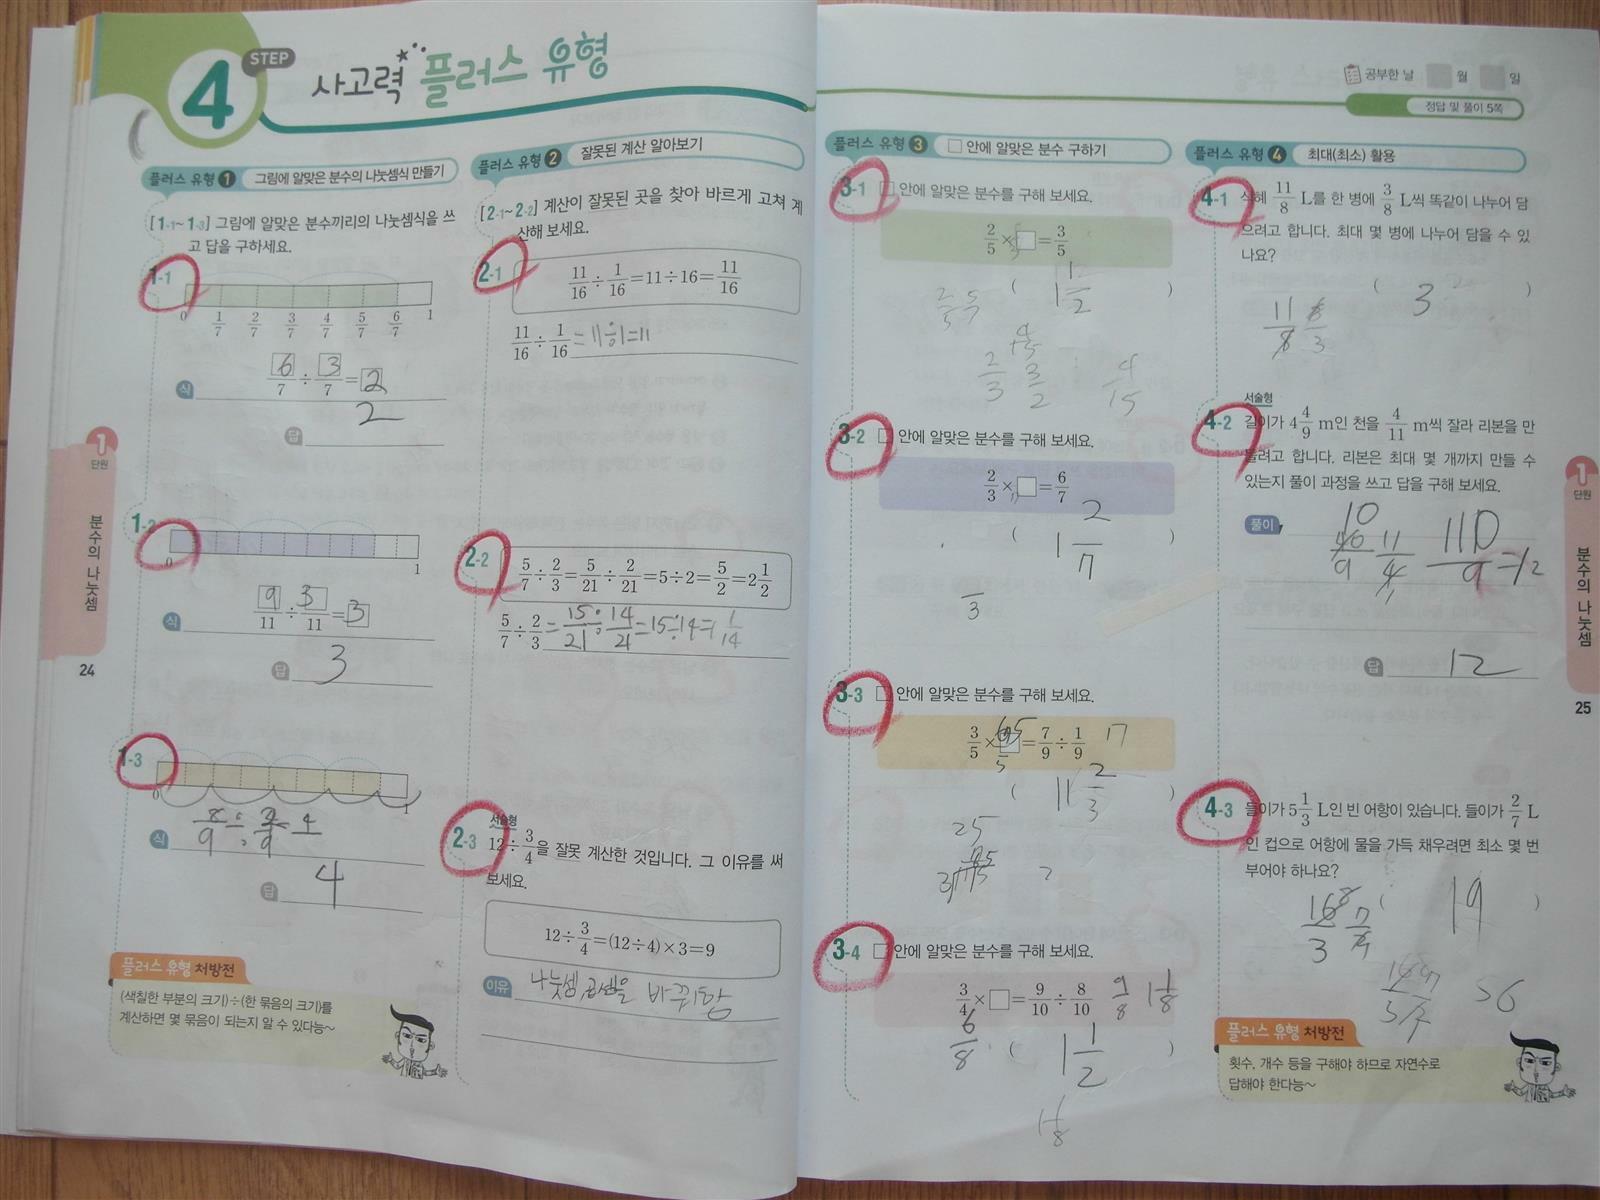 4 STEP 사고력 플러스 유형
플러스 유형 1 그림에 알맞은 분수의 나눗셈식 만들기
[1-1~1-3] 그림에 알맞은 분수끼리의 나눗셈식을 쓰
고 답을 구하세요.
1-1
0 1/7 2/7 3/7 4/7 5/7 6/7 1
식 6/7 ÷ 3/7 = 2
답 2
1-2
0 1
식 9/11 ÷ 3/11 = 3
답 3
1-3
0 1
식 8/9 ÷ 2/9 = 4
답 4
플러스 유형 처방전
(색칠한 부분의 크기)÷(한 묶음의 크기)를
계산하면 몇 묶음이 되는지 알 수 있다능~
1 단원
분수의 나눗셈
24
플러스 유형 2 잘못된 계산 알아보기
[2-1~2-2] 계산이 잘못된 곳을 찾아 바르게 고쳐 계
산해 보세요.
2-1
11/16 ÷ 1/16 = 11÷16 = 11/16
11/16 ÷ 1/16 = 11÷1=11
2-2
5/7 ÷ 2/3 = 5/21 ÷ 2/21 = 5÷2 = 5/2 = 2 1/2
5/7 ÷ 2/3 = 15/21 ÷ 14/21 = 15÷14 = 1 1/14
서술형
2-3 12÷ 3/4 을 잘못 계산한 것입니다. 그 이유를 써
보세요.
12÷ 3/4 = (12÷4)×3=9
이유 나눗셈,곱셈을 바꿔함
공부한 날 월 일
정답 및 풀이 5쪽
플러스 유형 3 □ 안에 알맞은 분수 구하기
3-1 □ 안에 알맞은 분수를 구해 보세요.
2/5 × □ = 3/5
( 1 1/2 )
2/3 3/2 4/15
3-2 □ 안에 알맞은 분수를 구해 보세요.
2/3 × □ = 6/7
( 1 2/7 )
3
3-3 □ 안에 알맞은 분수를 구해 보세요.
3/5 × □ = 7/9 ÷ 1/9 17
( 11 2/3 )
25
3-4 □ 안에 알맞은 분수를 구해 보세요.
3/4 × □ = 9/10 ÷ 8/10 9/8 1 1/8
6/8
( 1 1/2 )
1 1/8
플러스 유형 4 최대(최소) 활용
4-1 식혜 11/8 L를 한 병에 3/8 L씩 똑같이 나누어 담
으려고 합니다. 최대 몇 병에 나누어 담을 수 있
나요?
( 3 )
11/8 8/3
서술형
4-2 길이가 4 4/9 m인 천을 4/11 m씩 잘라 리본을 만
들려고 합니다. 리본은 최대 몇 개까지 만들 수
있는지 풀이 과정을 쓰고 답을 구해 보세요.
풀이 10 40/9 11/4 110/9 = 12
답 12
4-3 들이가 5 1/3 L인 빈 어항이 있습니다. 들이가 2/7 L
인 컵으로 어항에 물을 가득 채우려면 최소 몇 번
부어야 하나요?
( 19 )
16/3 8 7/2
56
플러스 유형 처방전
횟수, 개수 등을 구해야 하므로 자연수로
답해야 한다능~
1 단원
분수의 나눗셈
25